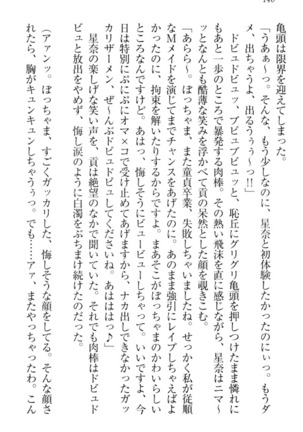 亀頭は限界を迎えてしまう。
「うあぁ〜っ。そんな、もう少しなのに、星奈と初体験したかったのにっ。もうダ
メ、出ちゃうよ、出るうぅぅ〜っ!!」
ドビュドビュッ、ブビュブビュブッと、恥丘にグリグリ亀頭を押しつけたまま憐れに
もあと一歩のところで暴発する肉棒。その熱い飛沫を直に感じながら、星奈はニマ〜
っとなんとも酷薄な笑みを浮かべて貢の呆然とした顔を覗きこむ。
「あらら〜。ぼっちゃま、また童貞卒業、失敗しちゃいましたね。せっかく私が従順
なMメイドを演じてまでチャンスをあげたのに。あのまま強引にレイプしちゃえばよ
かったのに、拘束を解いたりするからですよ。まあそこがぼっちゃまのかわいらしい
ところなんですけど。あはっ、悔しそうにビュービューしちゃって。いいですよ、今
日は特別にぷにぷにオマ×コで受け止めてあげますから、ナカ出しできなかったぶん
カリザーメン、ぜぇんぶドビュドビュしてくださいね。あはははっ♪」
星奈の楽しげな笑い声を、貢は絶望のなかで聞いていた。それでも肉棒はドビュド
ビュと放出をやめず、悔し涙のように白濁をぶちまけ続けたのだった。
(アァンッ。ぼっちゃま、すごくガッカリした、悔しそうな顔をしてる。そんな顔さ
れたら、胸がキュンキュンしちゃうぅっ。でも……アァ、またやっちゃったわ。こん